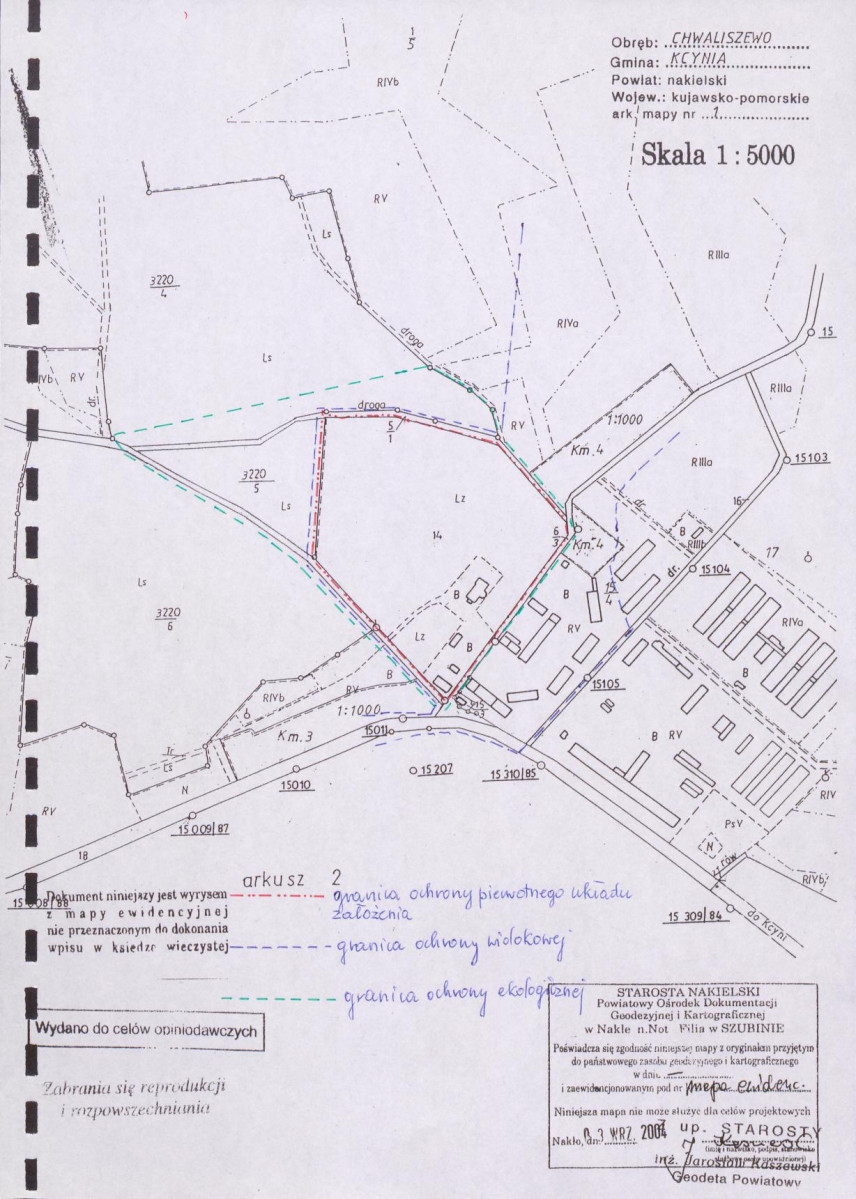 Obręb: CHWALISZEWO
Gmina: KCYNIA
Powiat: nakielski
Wojew.: kujawsko-pomorskie
ark. mapy nr 1
Skala 1 : 5000
1/5
RIVb
RV
Ls
RIIIa
3220/4
droga
RIVa
15
Ls
RIVb
RV
dr.
RIIIa
droga
5/1
RV
1:1000
Km.4
3220/5
Ls
Lz
RIIIa
15103
dr.
16
14
6/3
Km.4
B
RIIIb
17
Ls
15/4
dr.
15104
3220/6
B
B
RIVa
Lz
RV
B
B
B
RV
RIVb
15105
1:1000
15/3
Km.3
15011
B
RV
Ls
15207
15310/85
15010
N
RV
RIV
PsV
15009/87
N
18
rów
RIVb
arkusz 2
15008/88
15309/84
do Kcyni
Dokument niniejszy jest wyrysem
z mapy ewidencyjnej
nie przeznaczonym do dokonania
wpisu w księdze wieczystej
granica ochrony pierwotnego układu
założenia
granica ochrony widokowej
granica ochrony ekologicznej
Wydano do celów opiniodawczych
Zabrania się reprodukcji
i rozpowszechniania
STAROSTA NAKIELSKI
Powiatowy Ośrodek Dokumentacji
Geodezyjnej i Kartograficznej
w Nakle n.Not Filia w SZUBINIE
Poświadcza się zgodność niniejszej mapy z oryginałem przyjętym
do państwowego zasobu geodezyjnego i kartograficznego
w dniu
i zaewidencjonowanym pod nr mapa ewidenc.
Niniejsza mapa nie może służyć dla celów projektowych
Nakło, dn. 03 WRZ. 2007
up. STAROSTY
(imię i nazwisko, podpis, stanowisko
inż. Jarosław Kaszewski
Geodeta Powiatowy